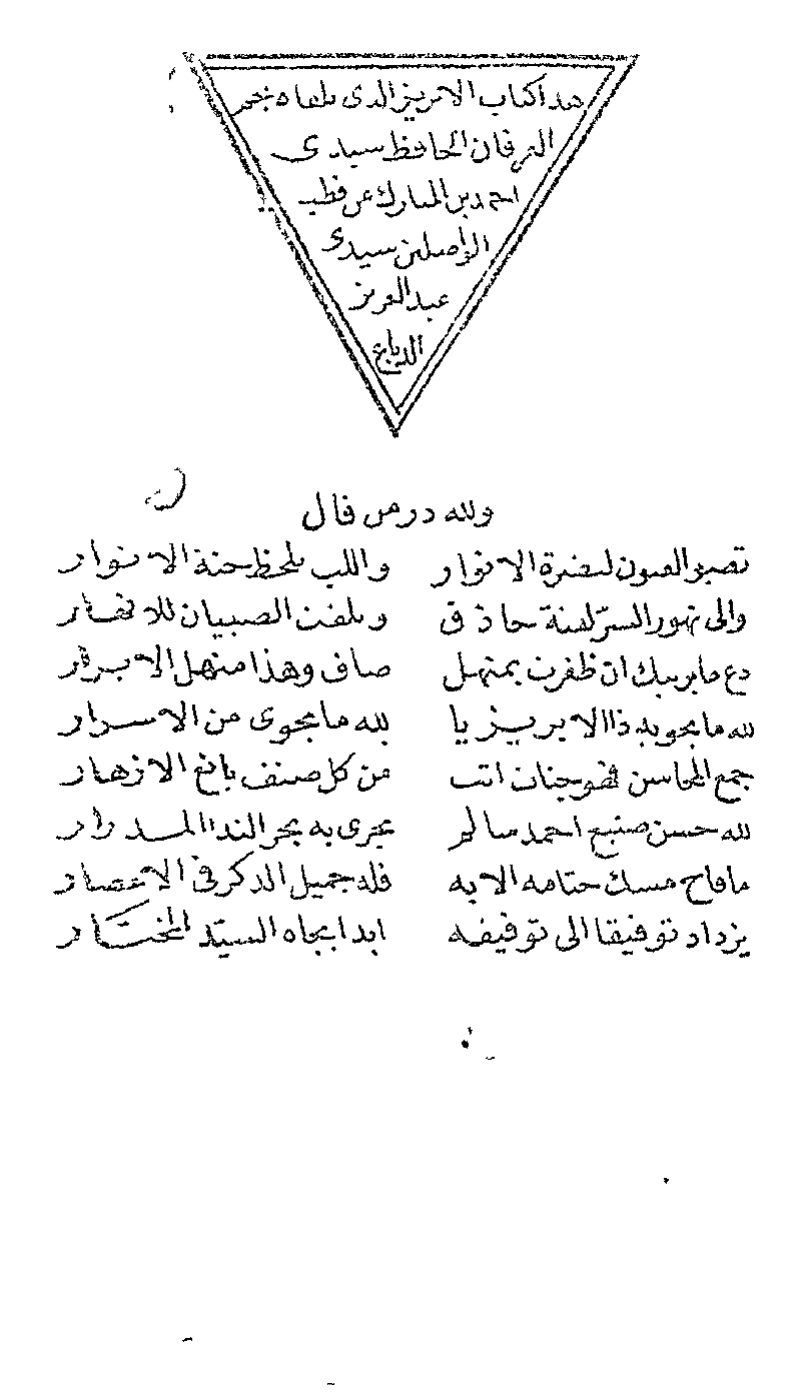 هذا كتاب الابريز الذي تلقاه نجم
العرفان الحافظ سيدي
احمد بن المبارك عن قطب
الواصلين سيدي
عبد العزيز
الدباغ
ولله در من قال
تصبو العيون لحضرة الانوار واللب يلحظ جنة الانوار
والى ظهور السرّ لفتة حاذق ويلفت الصبيان للازهار
دع ما يريبك ان ظفرت بمنهل صاف وهذا منهل الابرار
لله ما يحويه ذا الابريز يا لله ما يحوى من الاسرار
جمع المحاسن فهو جنات اتت من كل صنف يانع الازهار
لله حسن صنيع احمد سالم يجرى به بحر الندا المدرار
ما فاح مسك ختامه الا به فله جميل الذكر في الاعصار
يزداد توفيقا الى توفيقه ابدا بجاه السيّد المختار